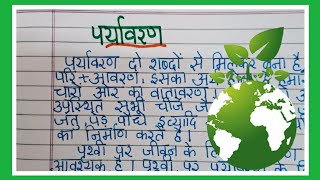 पर्यावरण
पर्यावरण दो शब्दों से मिलकर बना है
परि+आवरण, इसका अर्थ
चारों ओर का वातावरण
उपस्थित सभी चीजें जै
जंतु पेड़ पौधे इत्यादि
का निर्माण करते है।
पृथ्वी पर जीवन के लि
आवश्यक है। पृथ्वी पर